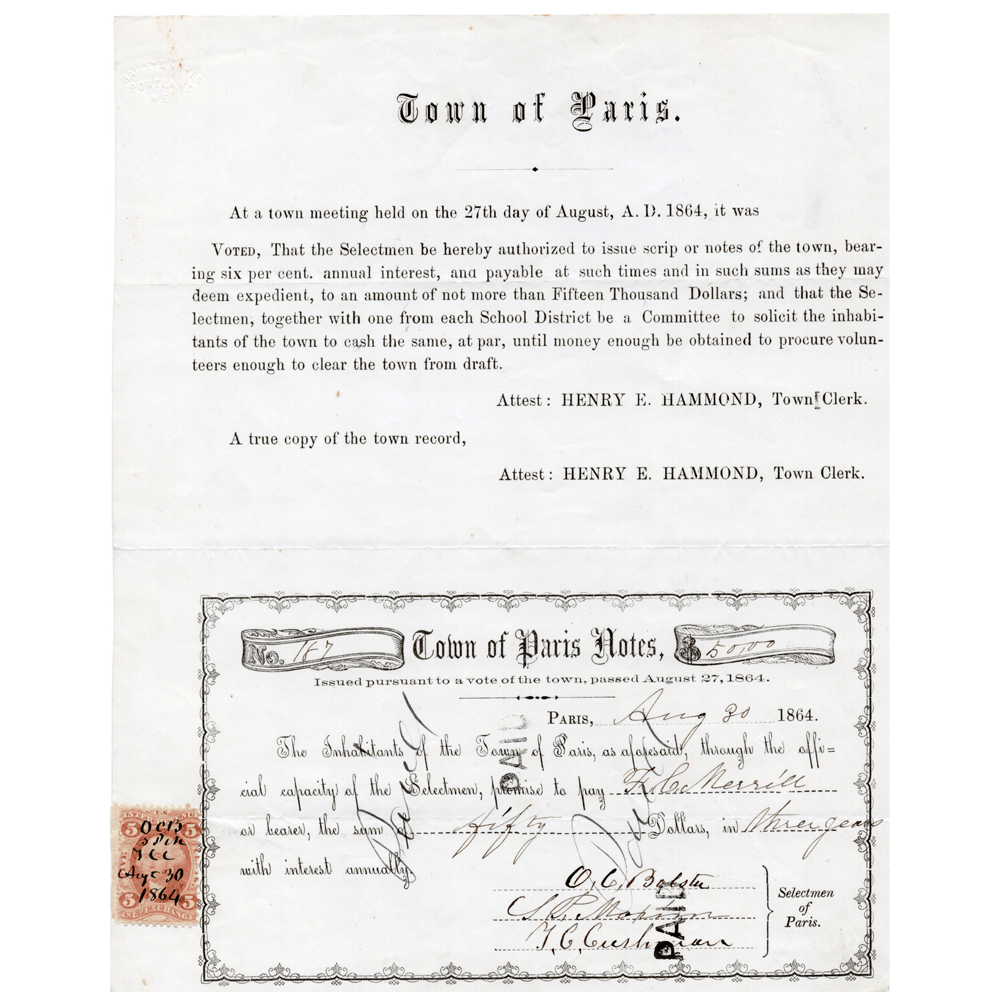 Town of Paris.
At a town meeting held on the 27th day of August, A. D. 1864, it was
VOTED, That the Selectmen be hereby authorized to issue scrip or notes of the town, bear-
ing six per cent. annual interest, and payable at such times and in such sums as they may
deem expedient, to an amount of not more than Fifteen Thousand Dollars; and that the Se-
lectmen, together with one from each School District be a Committee to solicit the inhabi-
tants of the town to cash the same, at par, until money enough be obtained to procure volun-
teers enough to clear the town from draft.
Attest: HENRY E. HAMMOND, Town Clerk.
A true copy of the town record,
Attest: HENRY E. HAMMOND, Town Clerk.
No. 187 Town of Paris Notes, $ 50.00
Issued pursuant to a vote of the town, passed August 27, 1864.
PARIS, Aug 30 1864.
The Inhabitants of the Town of Paris, as aforesaid, through the offi=
cial capacity of the Selectmen, promise to pay F. C. Merrill
or bearer, the sum fifty Dollars, in three years
with interest annually.
PAID
PAID
O. C. Bolster
S. P. Maxim
T. C. Cushman
Selectmen
of
Paris.
5 5
Aug 30
1864
5 5